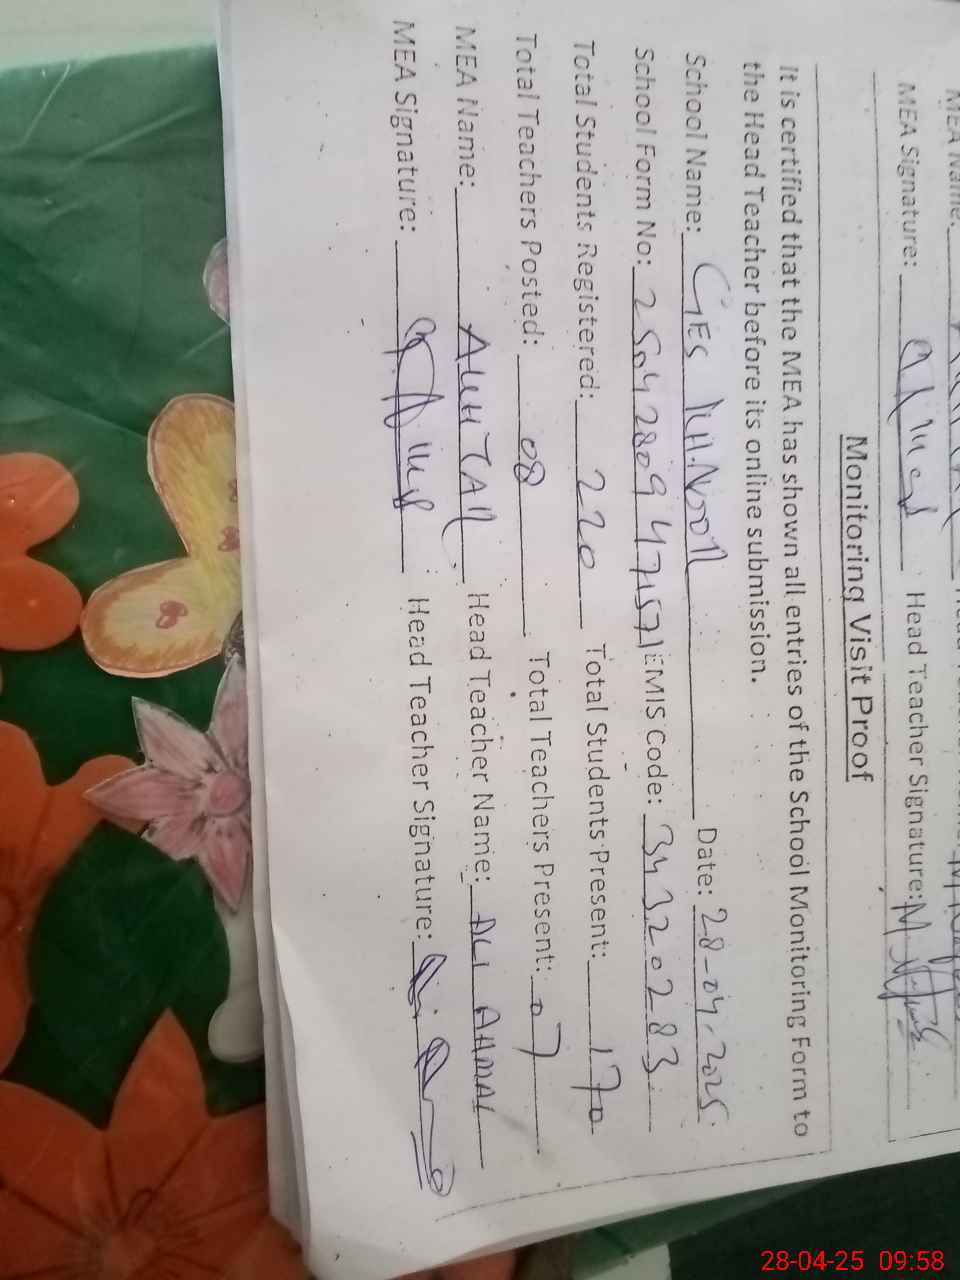 MEA Name:
MEA Signature: Head Teacher Signature:
Monitoring Visit Proof
It is certified that the MEA has shown all entries of the School Monitoring Form to
the Head Teacher before its online submission.
School Name: GES Date: 28-04-2025
School Form No: EMIS Code: 34320283
Total Students Registered: 220 Total Students Present: 170
Total Teachers Posted: 08 Total Teachers Present: 07
MEA Name: Head Teacher Name: ALI AHMAD
MEA Signature: Head Teacher Signature:
28-04-25 09:58